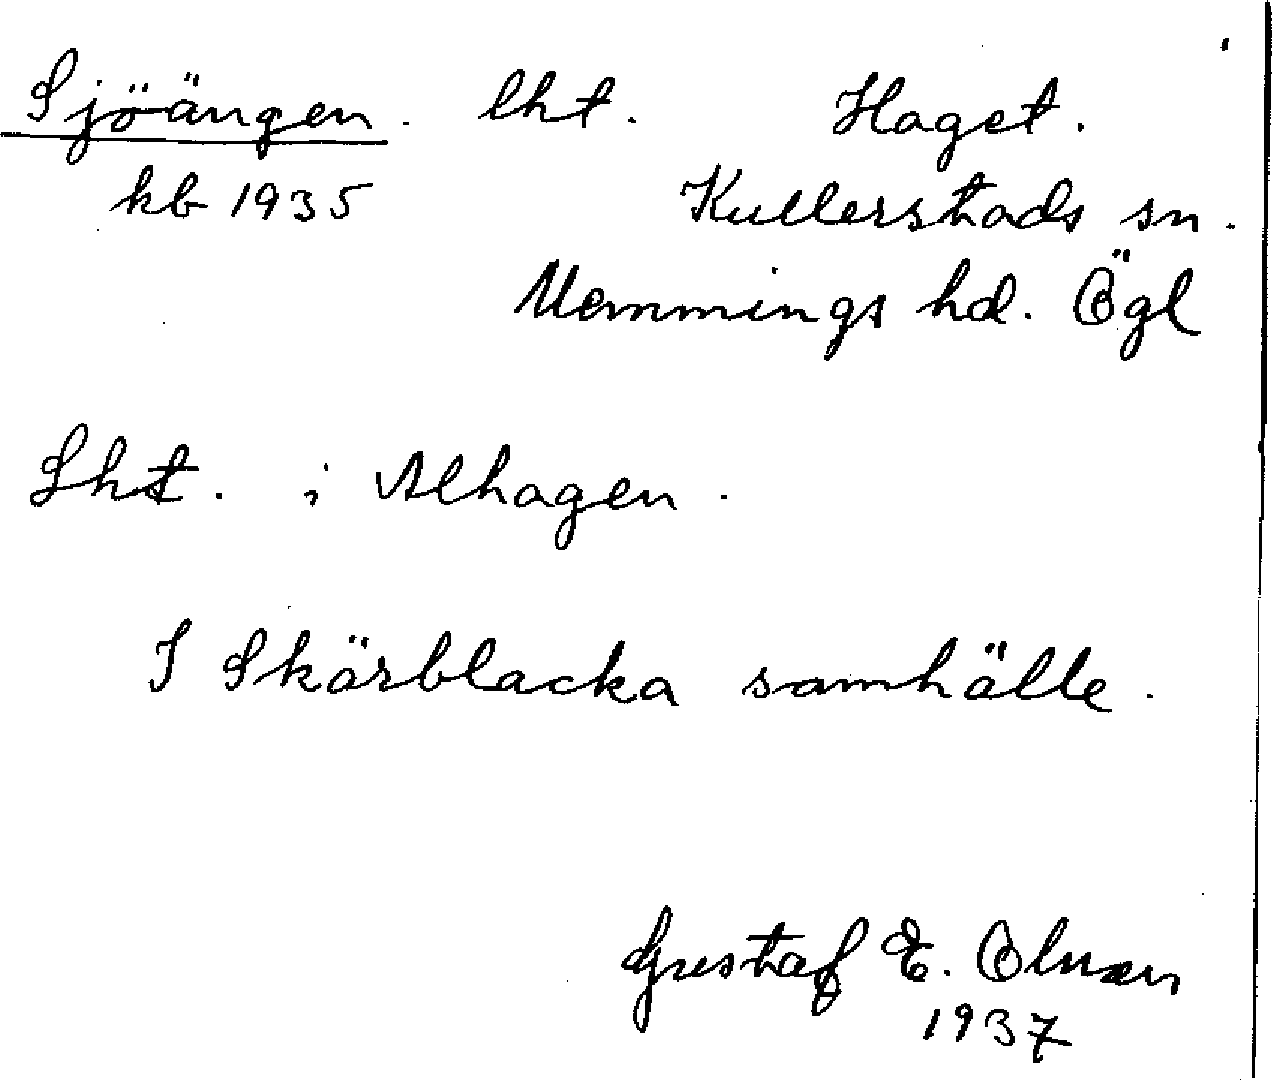 Sjöängen. lht. Haget.
kb 1935 Kullerstads sn.
Memmings hd. Ögl
Lht. i Alhagen.
I Skärblacka samhälle.
Gustaf E. Olman
1937